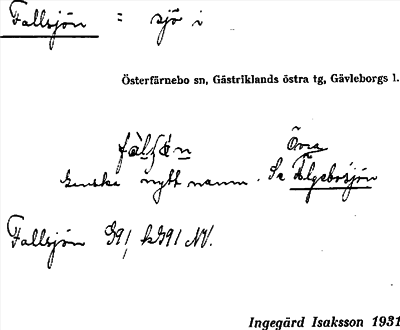 Fallsjön = sjö i
Österfärnebo sn, Gästriklands östra tg, Gävleborgs l.
Övra
ganska nytt namn. Se Älgebosjön
Fallsjön G91, kG91 NV.
Ingegärd Isaksson 1931